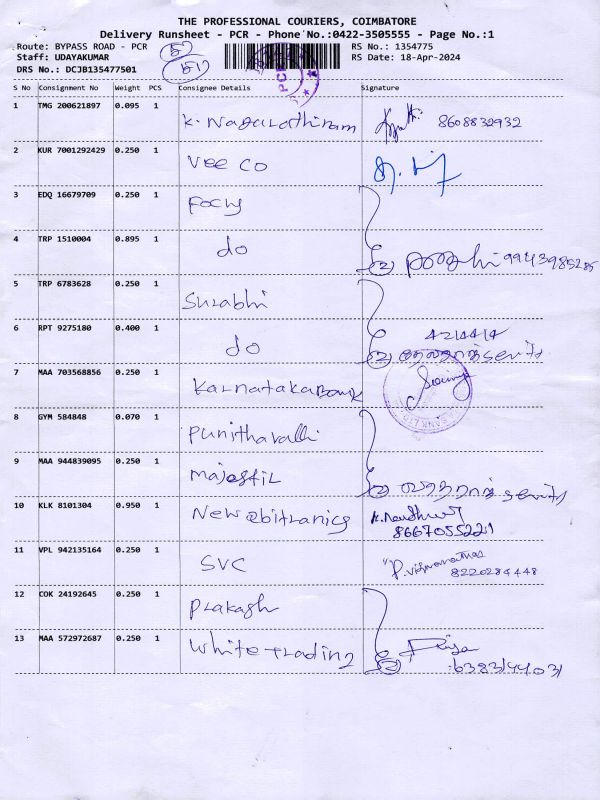 THE PROFESSIONAL COURIERS, COIMBATORE
Delivery Runsheet - PCR - Phone No.:0422-3505555 - Page No.:1
Route: BYPASS ROAD - PCR
RS No.: 1354775
Staff: UDAYAKUMAR
RS Date: 18-Apr-2024
DRS No.: DCJB135477501
PCR
S No Consignment No Weight PCS Consignee Details Signature
1 TMG 200621897 0.095 1 K. Nagurathinam 8608832932
2 KUR 7001292429 0.250 1 Vee Co
3 EDQ 16679709 0.250 1 Focus
4 TRP 1510004 0.895 1 do 2 9943985285
5 TRP 6783628 0.250 1 Surabhi
6 RPT 9275180 0.400 1 do 2
7 MAA 703568856 0.250 1 Karnataka Bank
8 GYM 584848 0.070 1 Punithavalli
9 MAA 944839095 0.250 1 2
10 KLK 8101304 0.950 1 New 8667055221
11 VPL 942135164 0.250 1 SVC P. Viswanathan 8220284448
12 COK 24192645 0.250 1 Prakash
13 MAA 572972687 0.250 1 White Trading 2